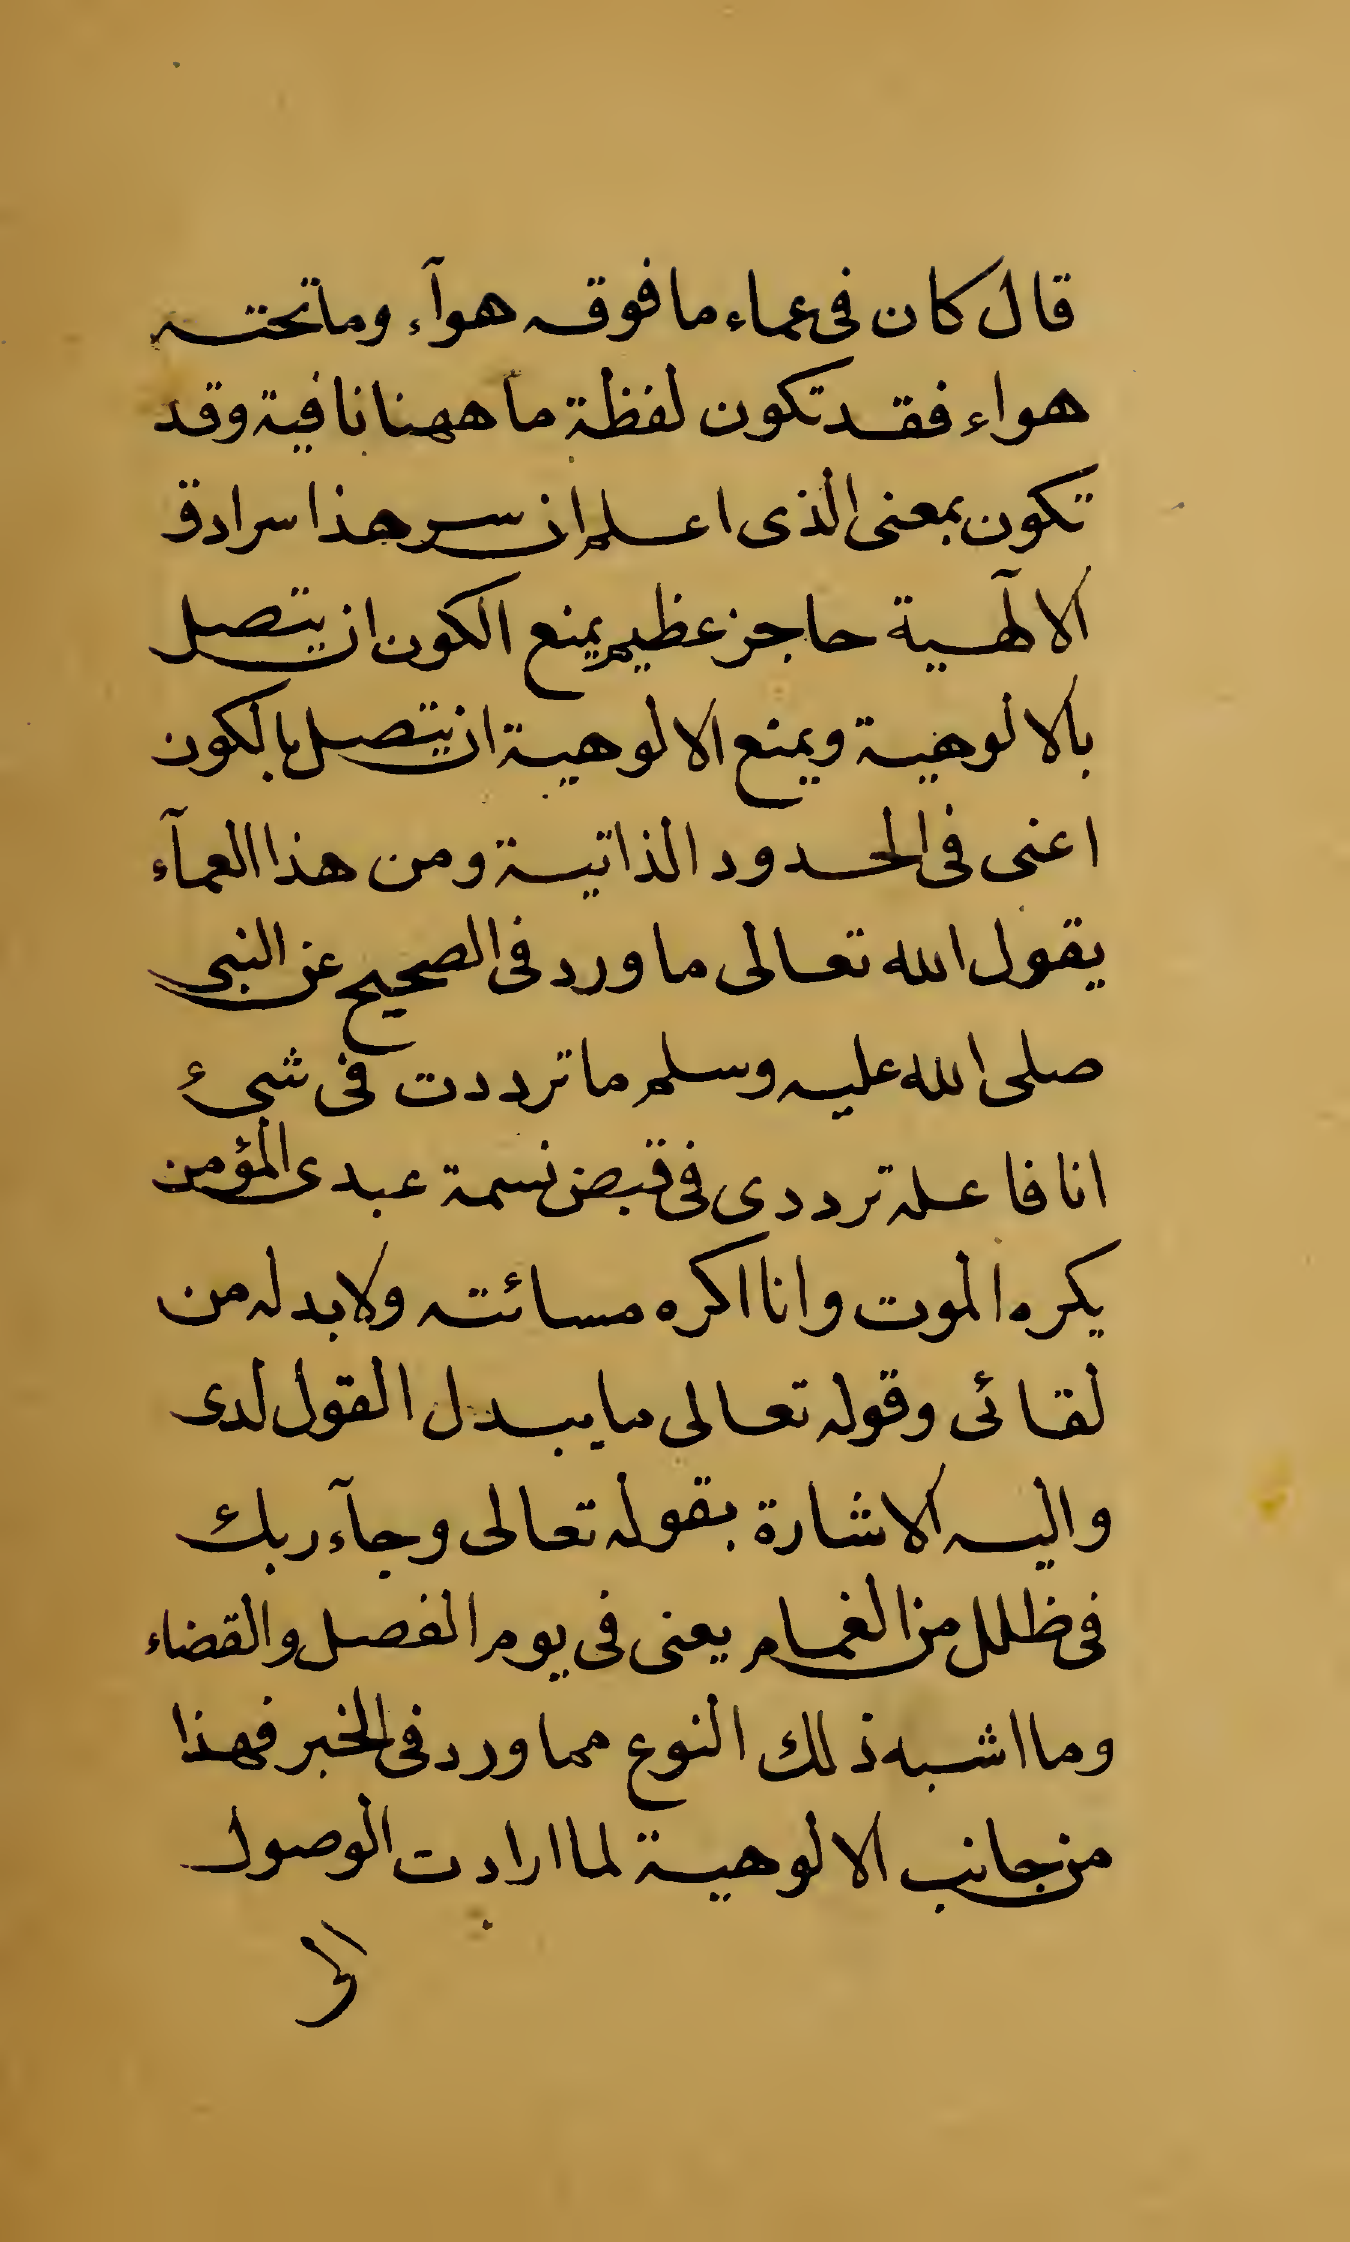 قال كان فى عماء ما فوقه هوآء وما تحته
هواء فقد تكون لفظة ما ههنا نافية وقد
تكون بمعنى الذى اعلم ان سر هذا سرادق
الالهية حاجز عظيم يمنع الكون ان يتصل
بالالوهية ويمنع الالوهية ان يتصل بالكون
اعنى فى الحدود الذاتية ومن هذا العمآء
يقول الله تعالى ما ورد فى الصحيح عن النبى
صلى الله عليه وسلم ما ترددت فى شىء
انا فاعله ترددى فى قبض نسمة عبدى المؤمن
يكره الموت وانا اكره مسائته ولا بد له من
لقائى وقوله تعالى ما يبدل القول لدى
واليه الاشارة بقوله تعالى وجآء ربك
فى ظلل من الغمام يعنى فى يوم الفصل والقضاء
وما اشبه ذلك النوع مما ورد فى الخبر فهذا
من جانب الالوهية لما ارادت الوصول
الى